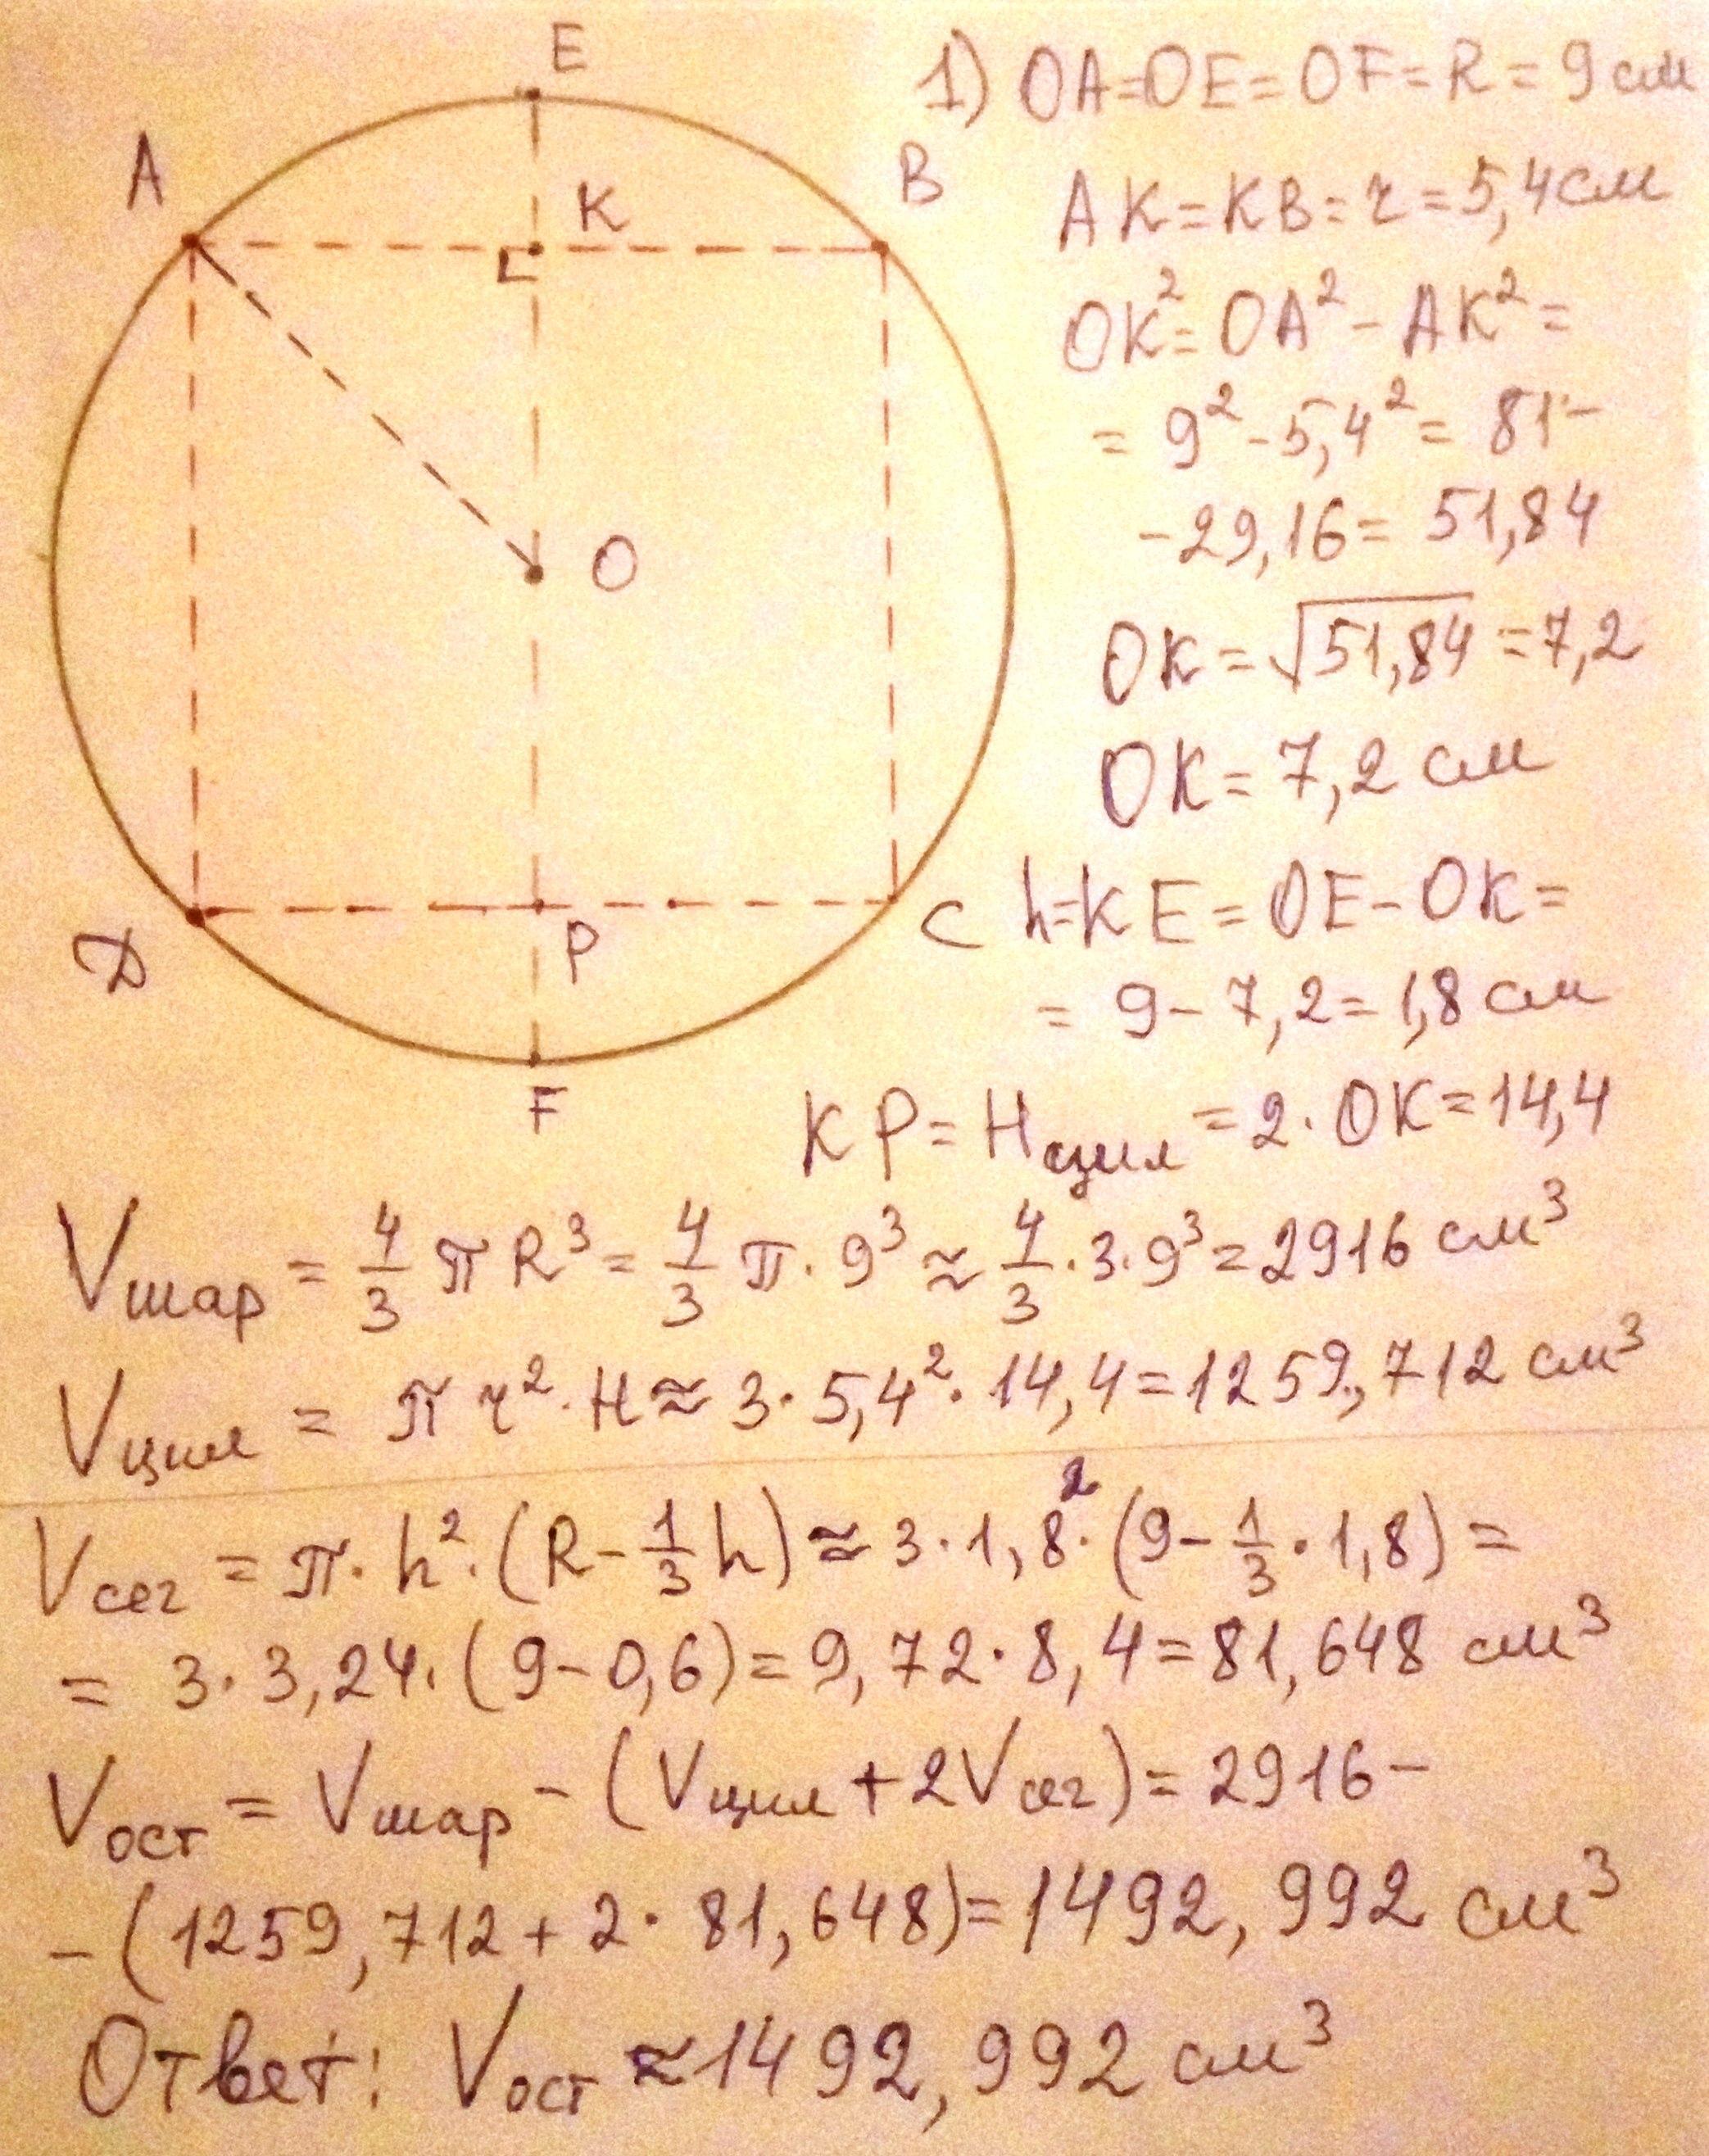 E
A
K
B
O
D
P
C
F
1) OA=OE=OF=R=9см
AK=KB=r=5,4см
OK²=OA²-AK²=
=9²-5,4²=81-
-29,16=51,84
OK=√51,84=7,2
OK=7,2 см
h=KE=OE-OK=
=9-7,2=1,8см
KP=Hцил=2·OK=14,4
Vшар=4/3πR³=4/3π·9³≈4/3·3·9³=2916 см³
Vцил=πr²·H≈3·5,4²·14,4=1259,712 см³
Vсег=π·h²·(R-1/3h)≈3·1,8²·(9-1/3·1,8)=
=3·3,24·(9-0,6)=9,72·8,4=81,648 см³
Vост=Vшар-(Vцил+2Vсег)=2916-
-(1259,712+2·81,648)=1492,992 см³
Ответ: Vост≈1492,992 см³